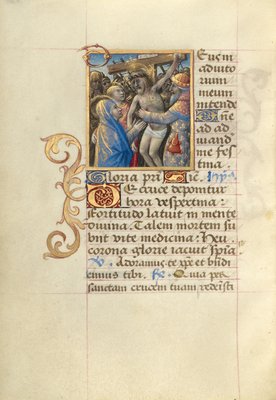 Deus in
adiuto
rium
meum
intende
Dñe
ad ad
iuuand
me fes
tina.
Gloria pri Sic. hyn9
De cruce deponitur
hora vespertina:
fortitudo latuit in mente
diuina. Talem mortem su
bijt vite medicina: Heu
corona glorie iacuit supia
V. Adoramus te xpe et bñdi
cimus tibi. R. Quia per
sanctam crucem tuam redemisti